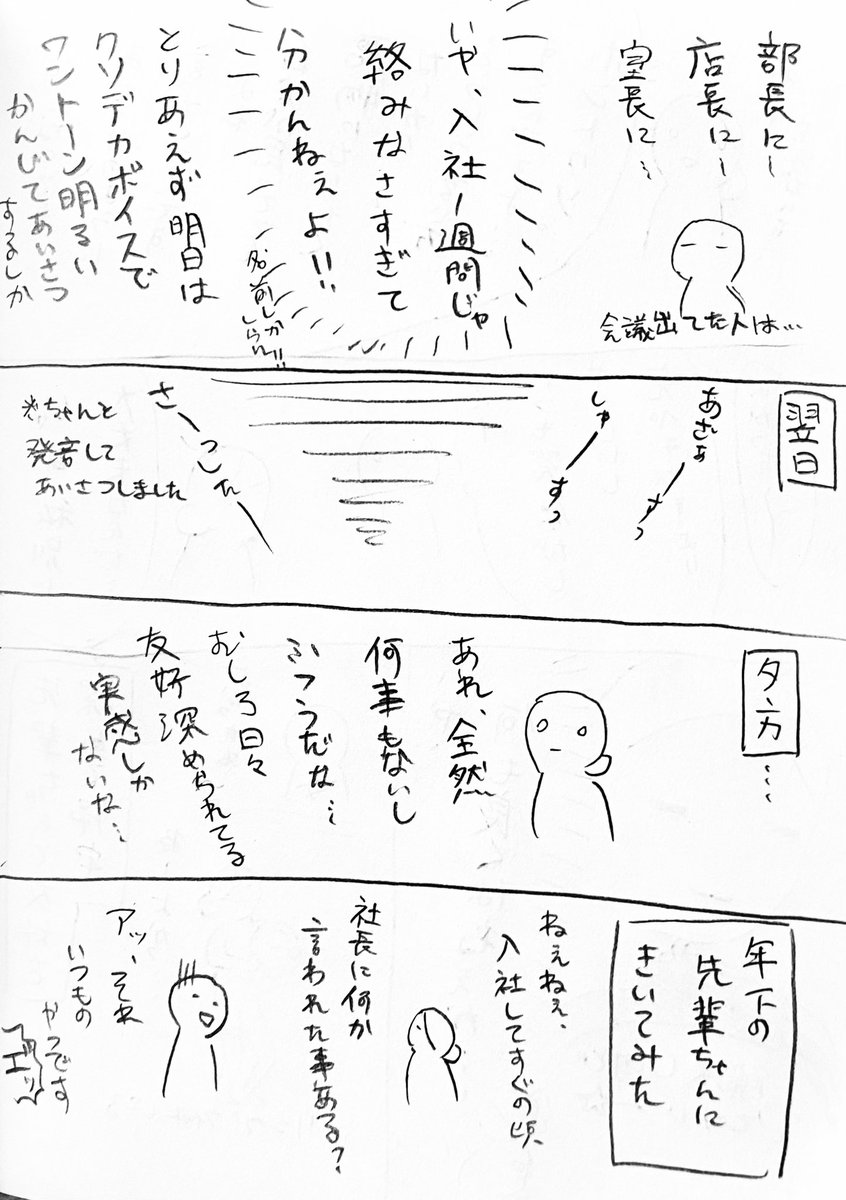 部長に―
店長に―
室長に…
会議出てた人は…
いや、入社一週間じゃ
絡みなさすぎて
分かんねぇよ!!
名前しかしらん!!
とりあえず明日は
クソデカボイスで
ワントーン明るい
かんじであいさつ
するしか
翌日
あざぁーさっ
しゃーすっ
さーっしたー
※ちゃんと
発音して
あいさつしました
夕方…
あれ、全然
何事もないし
ふつうだな…
むしろ日々
友好深められてる
実感しか
ないな…
年下の
先輩ちゃんに
きいてみた
ねぇねぇ、
入社してすぐの頃、
社長に何か
言われた事ある?
アッ、それ
いつもの
やつです
エッ